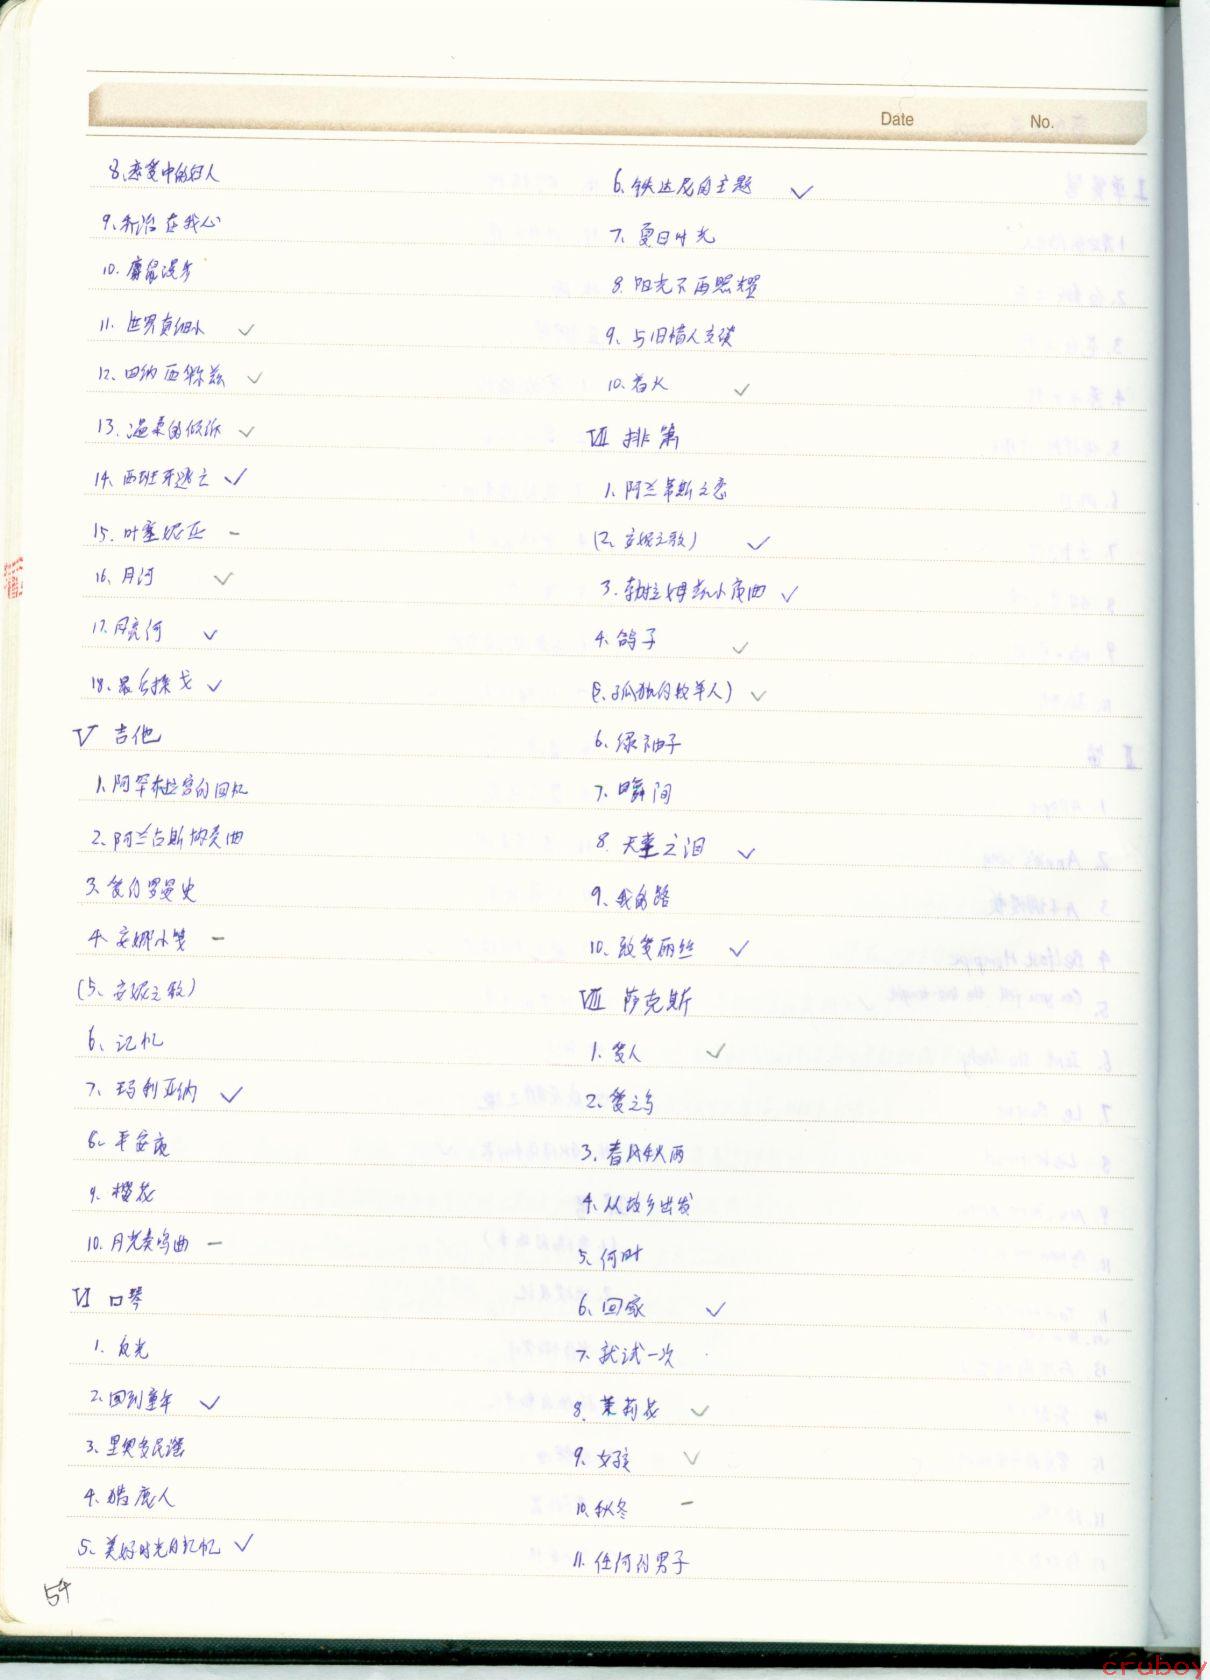 Date No.
8、恋爱中的女人
9、乔治在我心
10. 鼹鼠漫步
11. 世界真细小 ✓
12、田纳西华尔兹 ✓
13. 温柔的倾诉 ✓
14、西班牙逃亡 ✓
15. 叶塞妮亚 –
16、月河 ✓
17. 月亮河 ✓
18、最后探戈 ✓
Ⅴ 吉他
1. 阿罕布拉宫的回忆
2. 阿兰古斯协奏曲
3. 爱的罗曼史
4. 安娜小笺 –
(5、安妮之歌)
6、记忆
7、玛利亚纳 ✓
8、平安夜
9. 樱花
10. 月光奏鸣曲 –
Ⅵ 口琴
1. 反光
2. 回到童年 ✓
3、里奥多民谣
4. 猎鹿人
5、美好时光的记忆 ✓
6. 铁达尼的主题 ✓
7. 夏日时光
8. 阳光不再照耀
9、与旧情人交谈
10. 春火 ✓
Ⅶ 排箫
1. 阿兰蒂斯之恋
(2、安妮之歌) ✓
3. 勃拉姆兹小夜曲 ✓
4. 鸽子 ✓
(5、孤独的牧羊人) ✓
6、绿袖子
7. 瞬间
8. 天堂之泪 ✓
9. 我的路
10. 致爱丽丝 ✓
Ⅷ 萨克斯
1. 爱人 ✓
2. 爱之鸟
3. 春风秋雨
4. 从故乡出发
5. 何时
6、回家 ✓
7. 就试一次
8. 茉莉花 ✓
9. 女孩 ✓
10. 秋冬 –
11. 任何的男子
54
cruboy